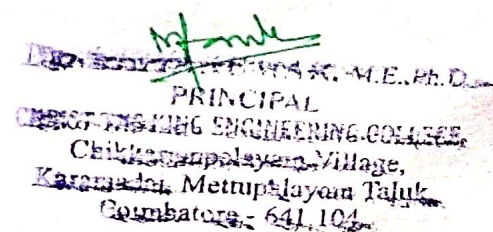 M.E., Ph.D.,
PRINCIPAL
CHRIST THE KING ENGINEERING COLLEGE,
Chikkarampalayam Village,
Karamadai, Mettupalayam Taluk
Coimbatore - 641 104.